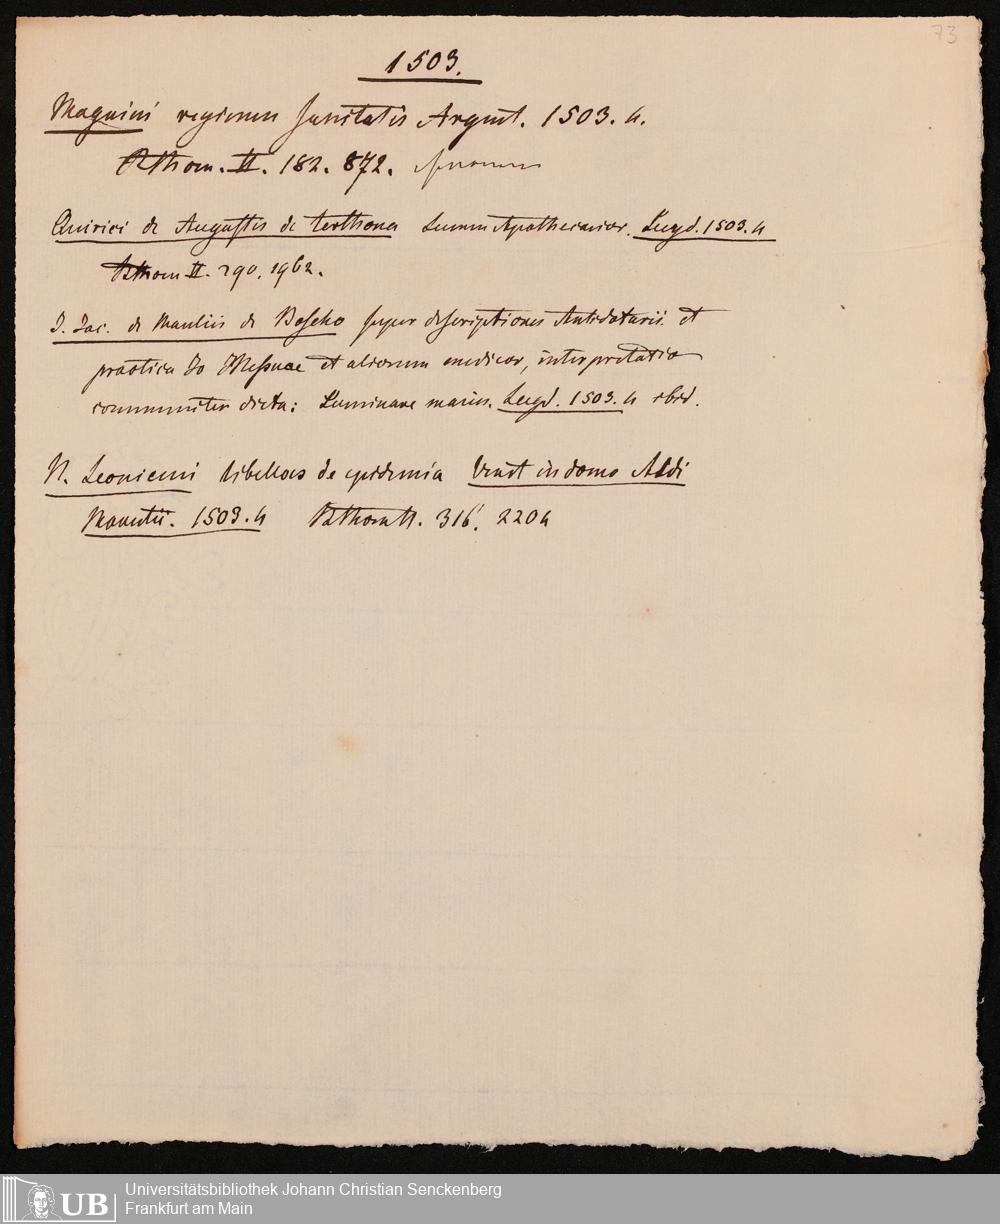 73
1503.
Magnini regimen sanitatis Argent. 1503. 4.
Bthom. II. 182. 872.
Quirici de Augustis de Terthona Lumen Apothecarior. Lugd. 1503. 4
Bthom II. 290. 1962.
I. Iac. de Manliis de Boscho super descriptiones Antidotarii et
practica Io Mesuae et aliorum medicor, interpretatio
communiter dicta: Luminare maius. Lugd. 1503. 4 ebd.
N. Leoniceni libellus de epidemia Venet in domo Aldi
Manutii. 1503. 4 Bthom II. 316. 2204
Universitätsbibliothek Johann Christian Senckenberg
Frankfurt am Main
UB